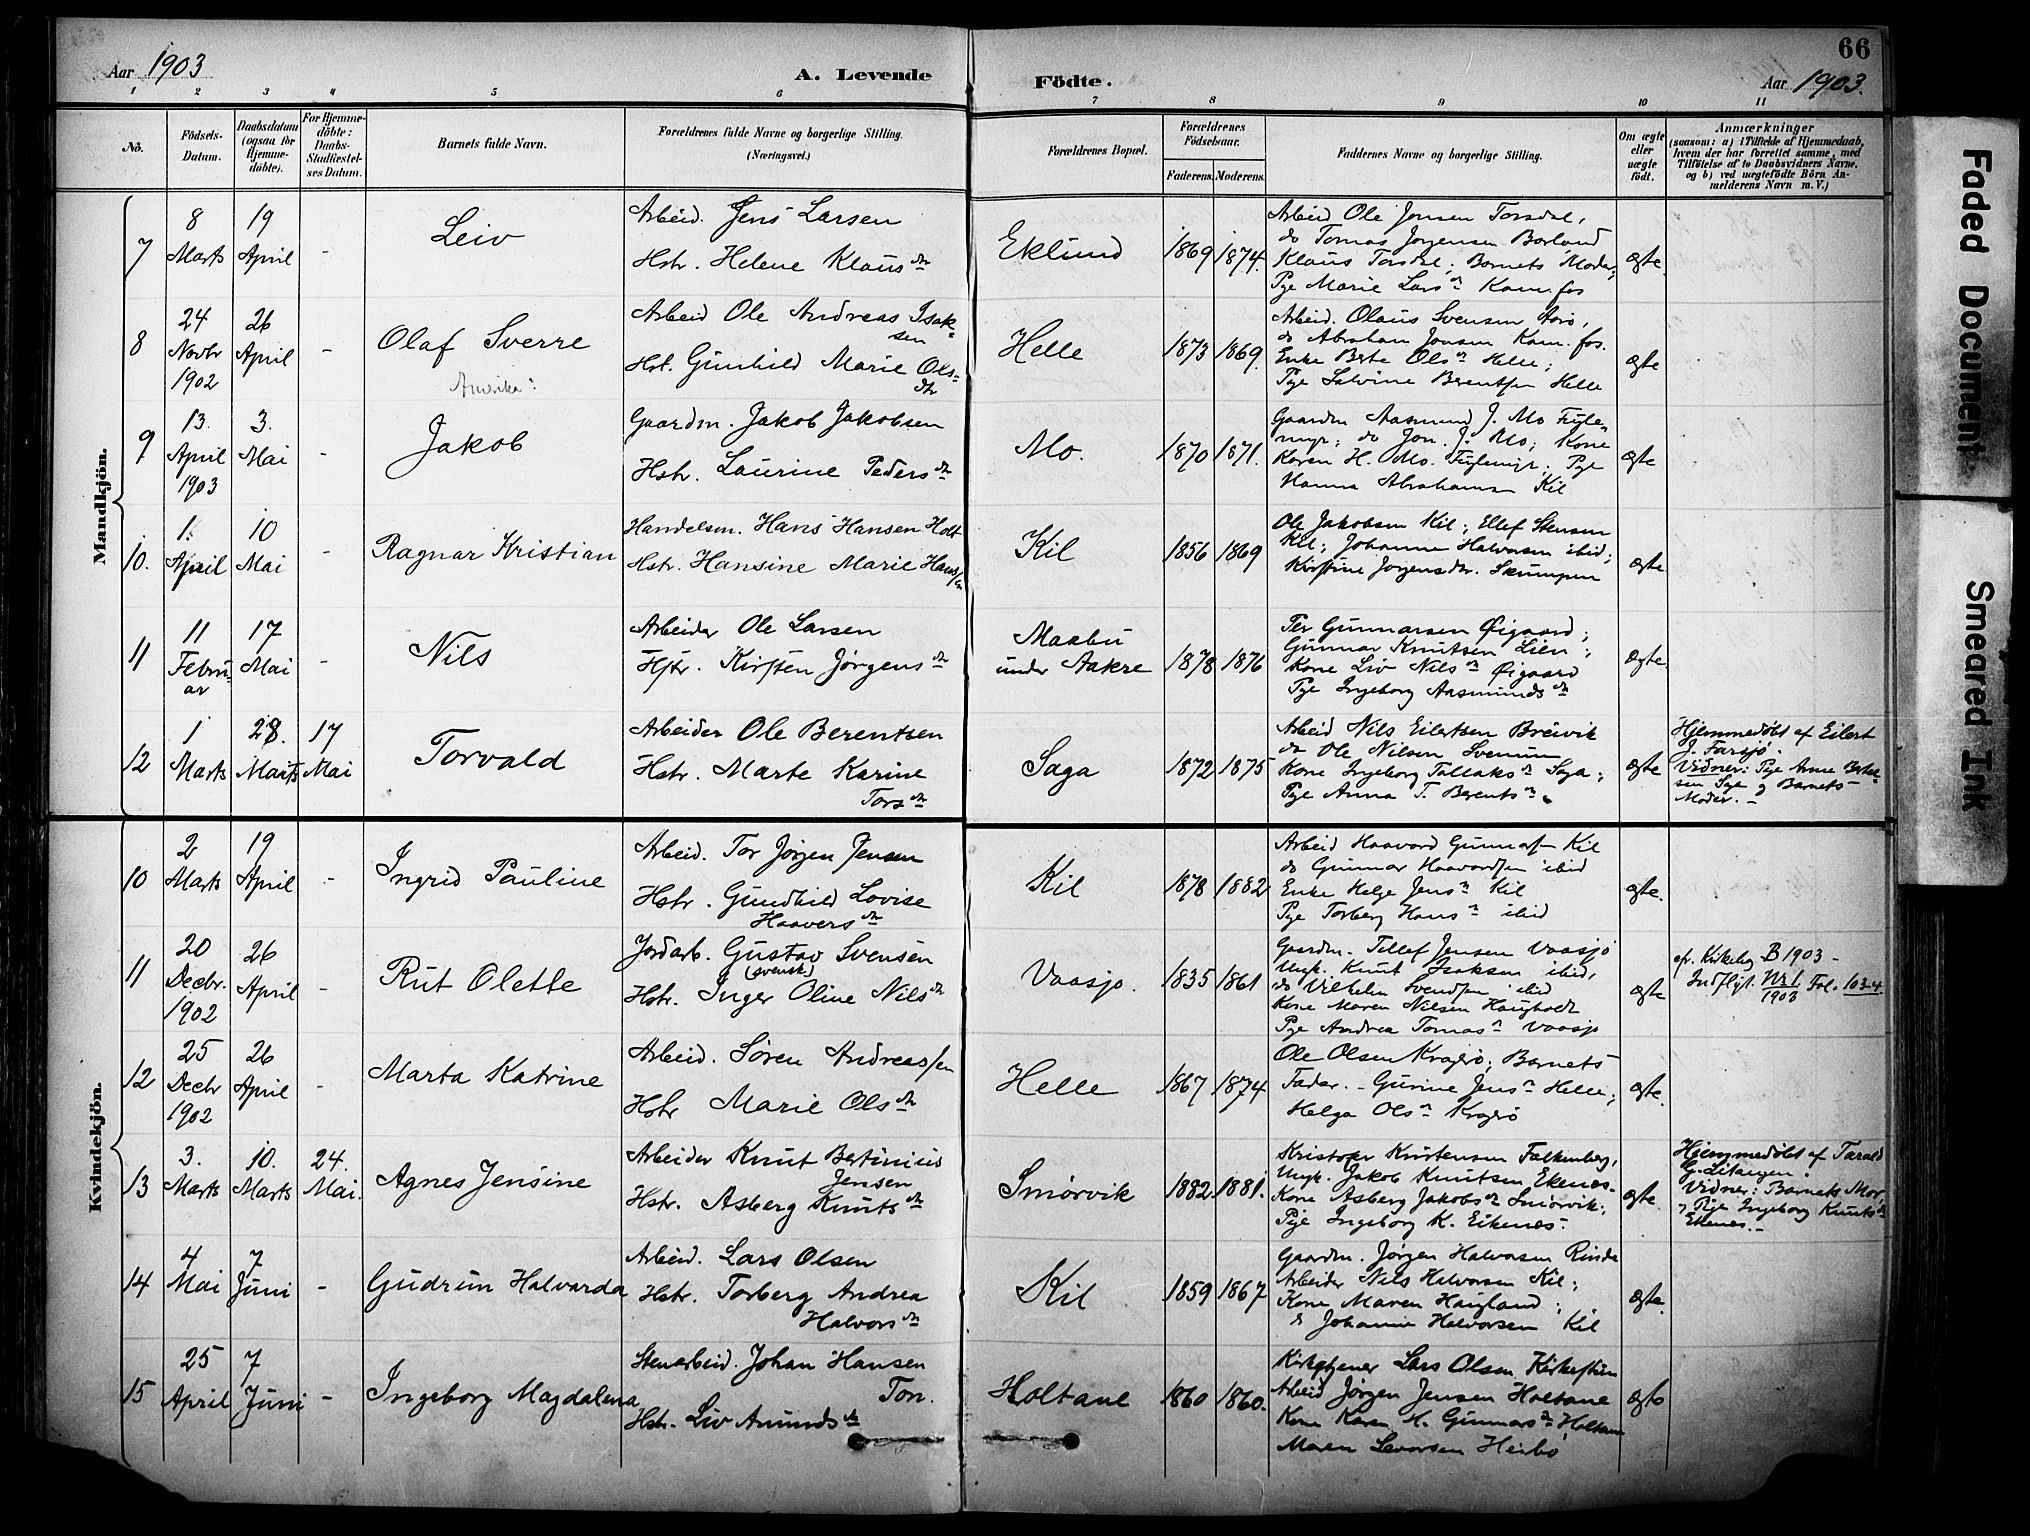 66
Aar 1903
A. Levende
Födte.
Aar 1903.
1 2 3 4 5 6 7 8 9 10 11
Nô.
Födsels-
Datum.
Daabsdatum
(ogsaa for
Hjemme-
döbte).
For Hjemme-
döbte:
Daabs-
Stadfæstel-
ses Datum.
Barnets fulde Navn.
Forældrenes fulde Navne og borgerlige Stilling.
(Næringsvei.)
Forældrenes Bopæl.
Forældrenes
Födselsaar.
Faderens. Moderens.
Faddernes Navne og borgerlige Stilling.
Om ægte
eller
uægte
födt.
Anmærkninger
(saasom: a) i Tilfælde af Hjemmedaab,
hvem der har forrettet samme, med
Tilföielse af to Daabsvidners Navne.
og b) ved uægtefödte Börn An-
melderens Navn m. V.)
Mandkjön.
7
8
Marts
19
April
-
Leiv
Arbeid. Jens Larsen
Hstr. Helene Klausdtr
Eklund
1869 1874.
Arbeid Ole Jonsen Torsdal,
do Tomas Jørgensen Borland
Klaus Torsdal; Barnets Moder;
Pige Marie Larsdtr Kamfos
ægte.
8
24
Novbr
1902
26
April
-
Olaf Sverre
Amerika?
Arbeid Ole Andreas Isak-
sen
Hst. Gunhild Marie Ols-
dtr
Helle
1873 1869.
Arbeid. Olaus Svensen Aarø,
do Abraham Jonsen Kamfos.
Enke Berte Olsdtr Helle;
Pige Salvine Berentsen Helle
ægte
9
13.
April
1903
3.
Mai
-
Jakob
Gaardm. Jakob Jakobsen
Hstr. Laurine Pedersdtr
Mo.
1870 1871.
Gaardm Aasmund J. Mo Fugle-
myr; do Jon. J. Mo; Kone
Karen H. Mo. Fuglemyr; Pige
Hanna Abrahams Kil
ægte
10.
1.
April
10
Mai
-
Ragnar Kristian
Handelsm. Hans Hansen Holt
Hstr. Hansine Marie Hans/en
Kil
1856 1869
Ole Jakobsen Kil; Ellef Stensen
Kil; Johanne Halvorsen ibid;
Kirstine Jørgensdtr. Skrumpen
ægte
11
11
Febru-
ar
17
Mai
-
Nils
Arbeider Ole Larsen
Hstr. Kirsten Jørgensdtr
Maabu
under Aakre
1878 1876
Per Gunnarsen Øigaard;
Gunnar Knutsen Lien;
Kone Liv Nilsdtr Øigaard
Pige Ingeborg Aasmundsdtr
ægte.
12
1
Marts
28.
Marts
17
Mai
Torvald
Arbeider Ole Berentsen
Hstr. Marte Karine
Torsdtr
Saga
1872 1875
Arbeid Nils Eilertsen Breivik
do Ole Nilsen Svenum
Kone Ingeborg Tallaksdtr Saga;
Pige Anna T. Berentsdtr.
ægte
Hjemmedøbt af Eilert
J. Farsjø.
Vidner: Pige Anne Bertel-
sen Saga og Barnets
Moder. -
Kvindekjön.
10
2
Marts
19
April
-
Ingrid Pauline
Arbeid. Tor Jørgen Jensen
Hstr. Gundhild Lovise
Haaversdtr
Kil
1878 1882
Arbeid Haavard Gunnarsen Kil
do Gunnar Haavardsen ibid
Enke Helge Jensdtr Kil
Pige Torberg Hansdtr ibid
ægte.
11
20
Decbr.
1902
26
April
-
Rut Olette
Jordarb. Gustav Svensen
(svensk)
Hstr. Inger Oline Nilsdtr
Vaasjø.
1835 1861
Gaardm. Tellef Jensen Vaasjø
Ungk. Knut Isaksen ibid,
do Vilhelm Svendsen ibid
Kone Maren Nilsen Haugholt
Pige Andrea Tomasdtr Vaasjø
ægte
cfr. Kirkebog B 1903 -
Indflyt. Nr 1 1903 Fol. 103-4.
12
25
Decbr
1902
26
April
-
Marta Katrine
Arbeid. Søren Andreas/en
Hstr Marie Olsdtr
Helle
1867 1874
Ole Olsen Kragerø; Barnets
Fader. - Gurine Jensdtr Helle;
Helga Olsdtr Kragerø
ægte.
13
3.
Marts
10.
Marts
24.
Mai.
Agnes Jensine
Arbeider Knut Bertinius
Jensen
Hstr. Asberg Knutsdtr
Smørvik
1882. 1881.
Kristofer Knutensen Falkenberg,
Ungk. Jakob Knutsen Ekenes.
Kone Asberg Jakobsdtr Smørvik;
Pige Ingeborg K. Eikenes.
ægte.
Hjemmedøbt af Tarald
G. Litangen.
Vidner: Barnets Mor,
og Pige Ingeborg Knutsdtr
Ekenes. -
14
4
Mai
7
Juni
-
Gudrun Halvarda
Arbeid. Lars Olsen
Hstr. Torberg Andrea
Halvorsdtr
Kil
1859 1867
Gaardm. Jørgen Halvorsen Rinde
Arbeider Nils Halvorsen Kil;
Kone Maren Haugland;
do Johanne Halvorsen Kil
ægte.
15
25
April
7
Juni
-
Ingeborg Magdalena
Stenarbeid. Johan Hansen
Ton.
Hstr. Liv Amundsdtr
Holtane
1860 1860.
Kirketjener Lars Olsen Kirketun
Arbeid Jørgen Jensen Holtane
Kone Karen H. Gunnarsdtr Holtane
Maren Levorsen Heibø
ægte
Faded Document
Smeared Ink